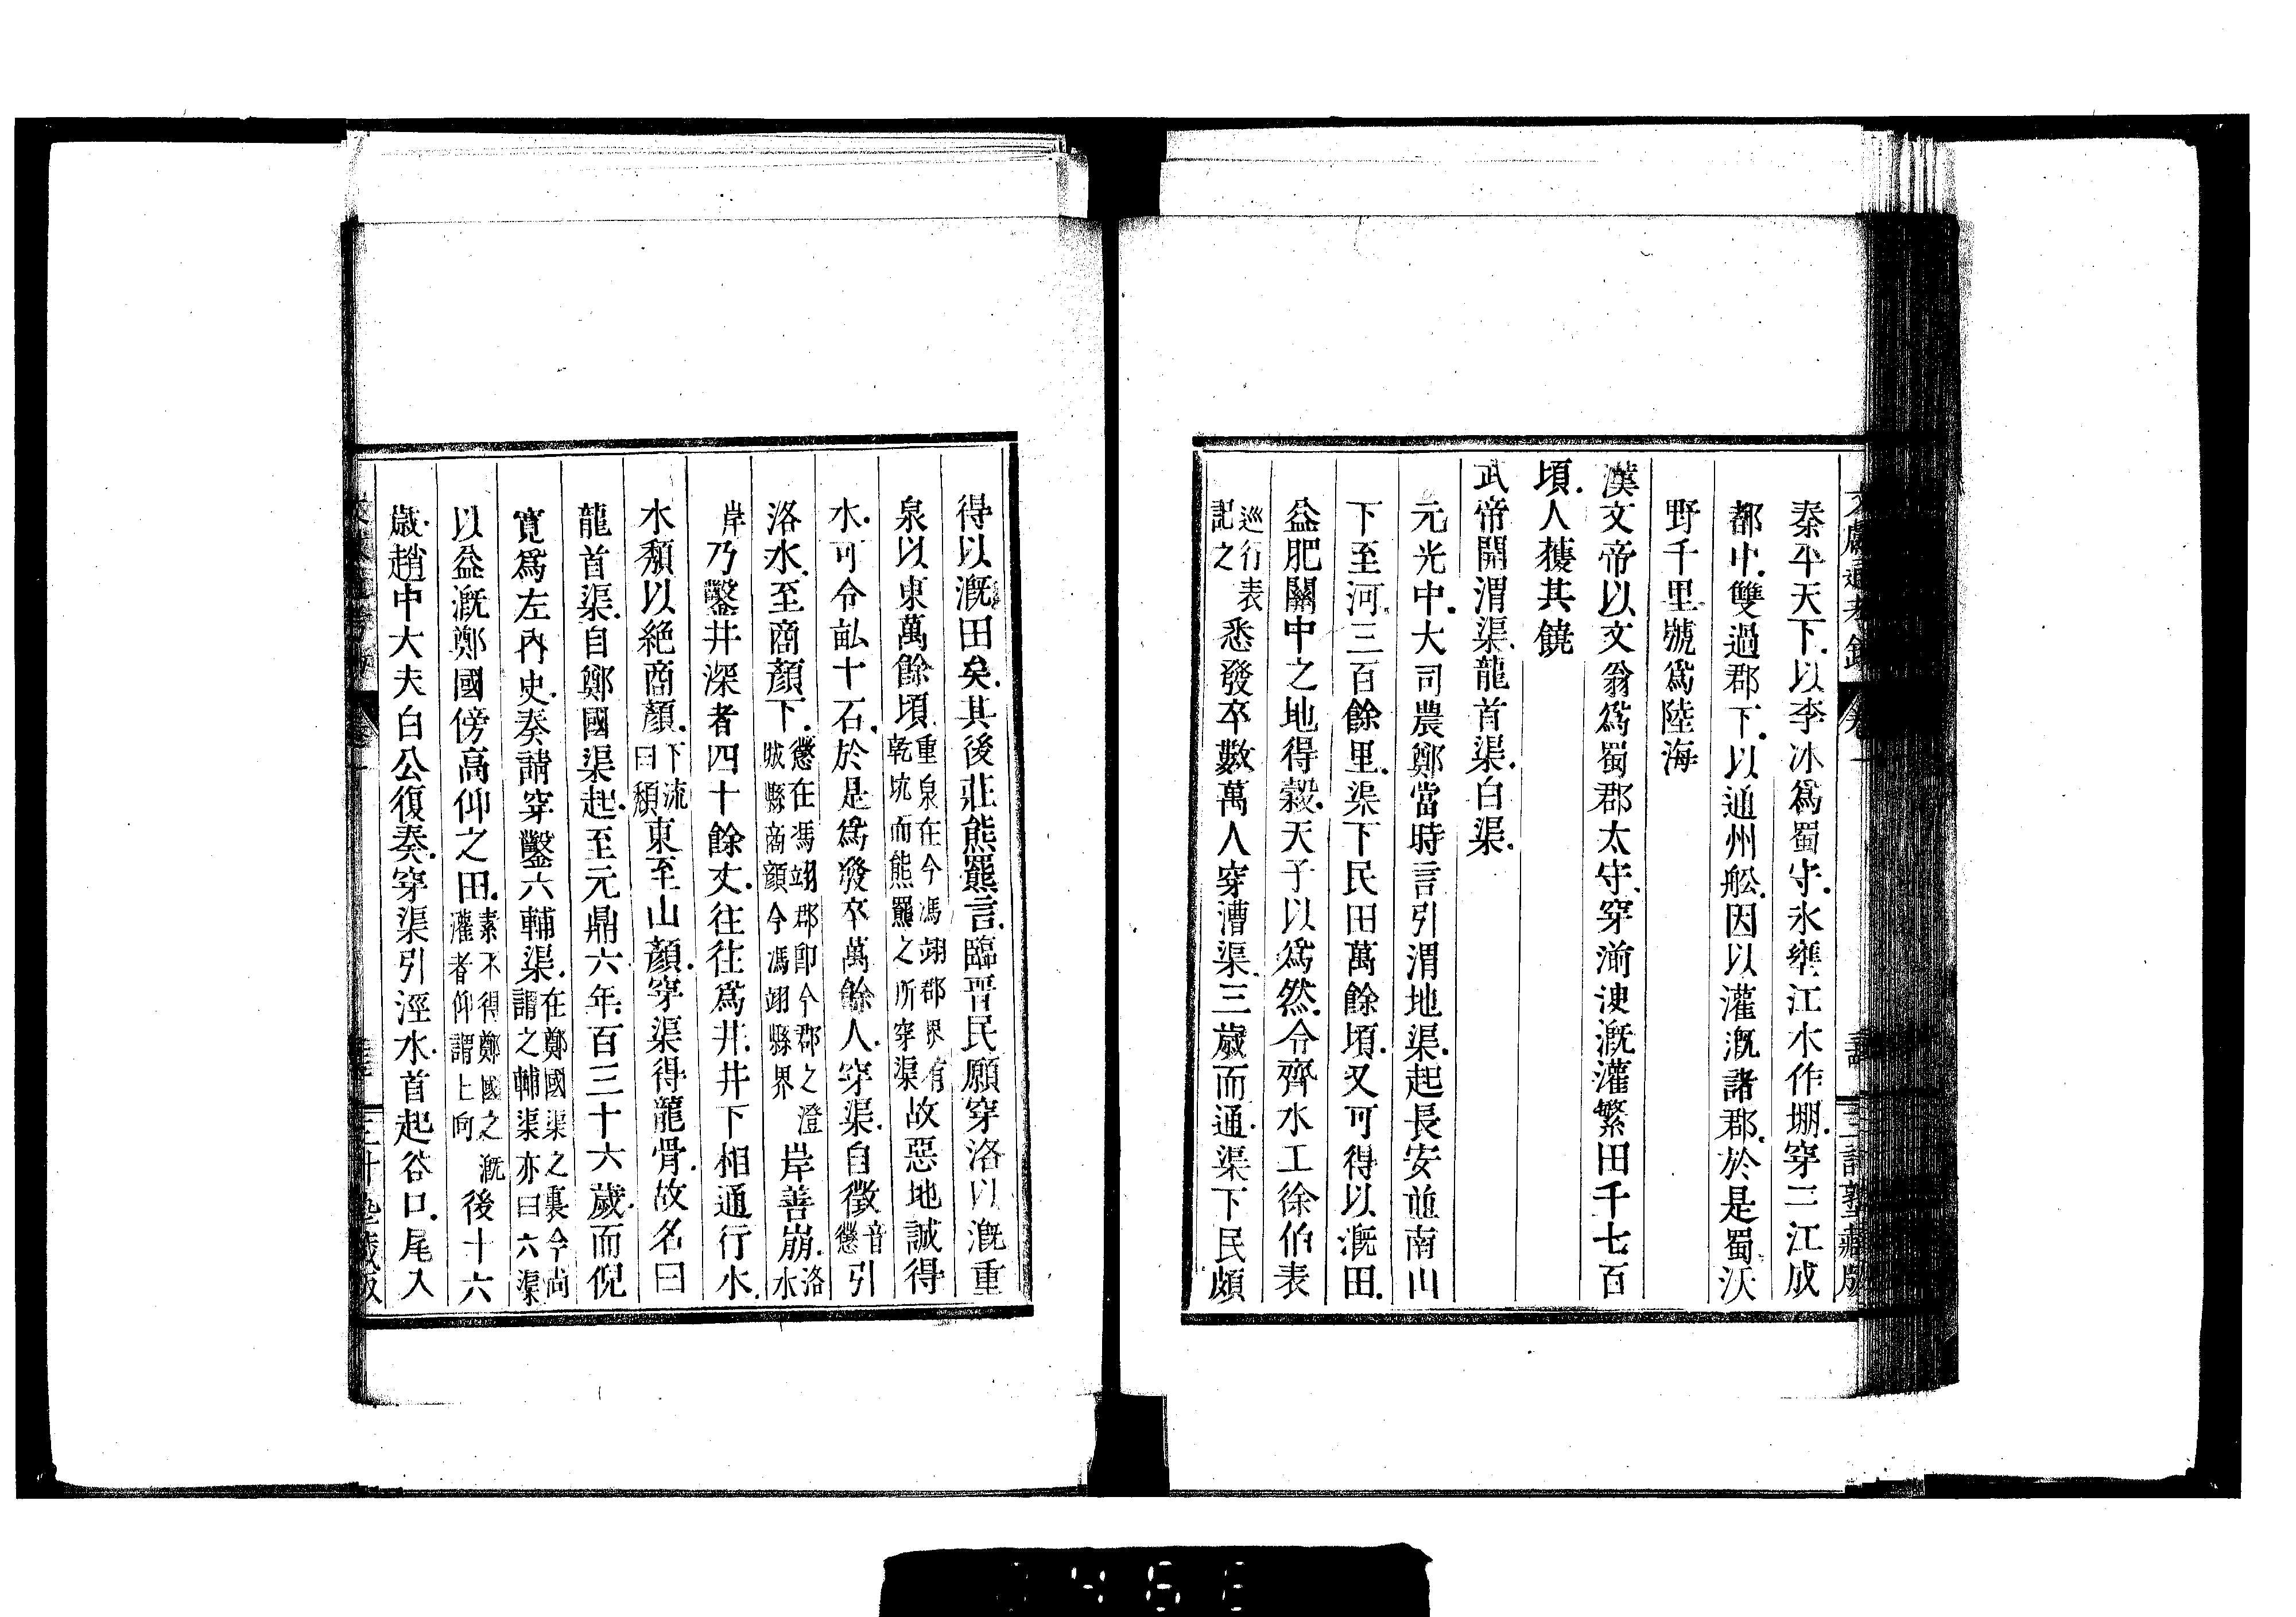 秦平天下.以李冰爲蜀守.冰壅江水作堋.穿二江成
都中.雙過郡下.以通州舩.因以灌漑諸郡.於是蜀沃
野千里.號爲陸海
漢文帝以文翁爲蜀郡太守.穿湔𣸣漑灌繁田千七百
頃.人獲其饒
武帝開渭渠.龍首渠.白渠.
元光中.大司農鄭當時言.引渭地渠.起長安並南山
下至河.三百餘里.渠下民田萬餘頃.又可得以漑田.
益肥關中之地得穀.天子以爲然.令齊水工徐伯表
巡行表
記之
悉發卒數萬人穿漕渠.三歲而通.渠下民頗
得以漑田矣.其後莊熊羆言.臨晋民願穿洛以漑重
泉以東萬餘頃.
重泉在今馮翊郡界有
乾坑而熊羆之所穿渠
故惡地誠得
水.可令畝十石.於是爲發卒萬餘人.穿渠.自徵
音
懲
引
洛水.至商顏下.
懲在馮翊郡卽今郡之澄
城縣商顏今馮翊縣界
岸善崩.
洛
水
岸
乃鑿井深者四十餘丈.往往爲井.井下相通行水.
水頽以絶商顏.
下流
曰頽
東至山顏.穿渠得龍骨.故名曰
龍首渠.自鄭國渠起.至元鼎六年.百三十六歲.而倪
寬爲左內史.奏請穿鑿六輔渠.
在鄭國渠之裏今尚
謂之輔渠亦曰六渠
以益漑鄭國傍高仰之田.
素不得鄭國之漑
灌者仰謂上向
後十六
歲.趙中大夫白公復奏.穿渠引涇水.首起谷口.尾入